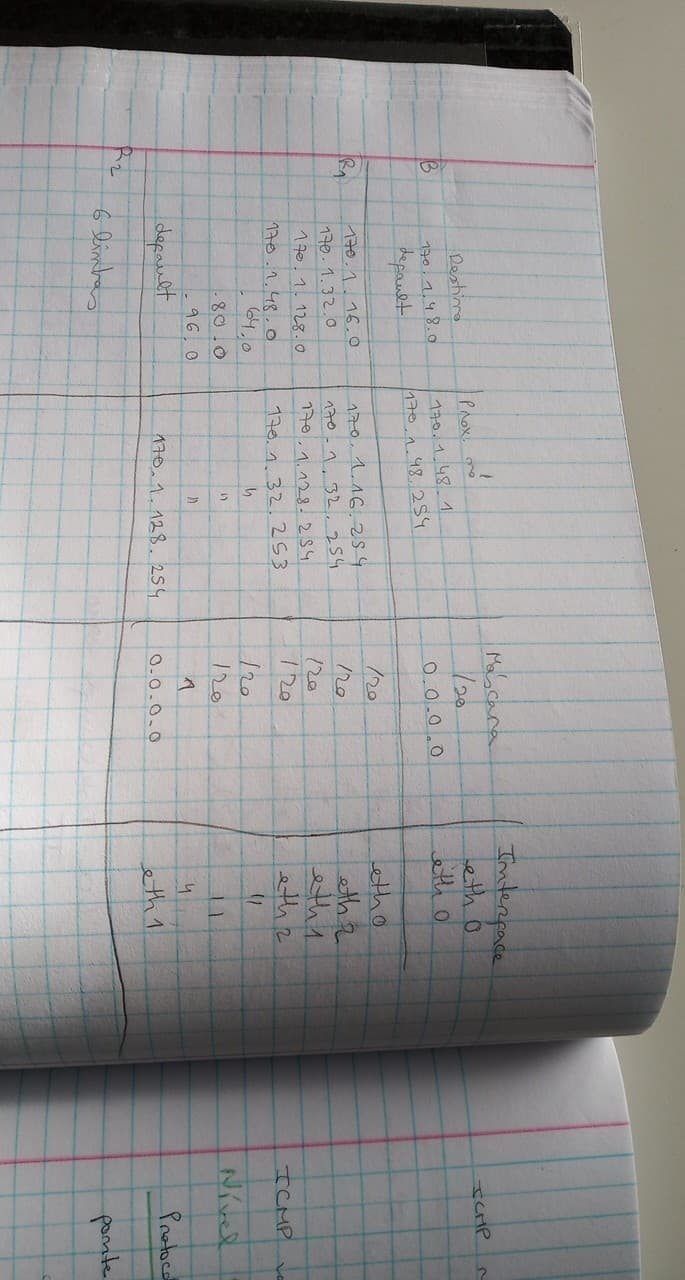 Destino Prox. nó Máscara Interface
B 170.1.48.0 170.1.48.1 /20 eth 0
default 170.1.48.254 0.0.0.0 eth 0
R1 170.1.16.0 170.1.16.254 /20 eth0
170.1.32.0 170.1.32.254 /20 eth2
170.1.128.0 170.1.128.254 /20 eth1
170.1.48.0 170.1.32.253 /20 eth2
.64.0 " /20 "
.80.0 " /20 "
.96.0 " "
default 170.1.128.254 0.0.0.0 eth1
R2 6 linhas
ICMP
ICMP
Nível
ponte